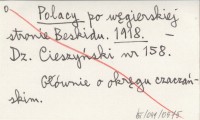 Polacy po węgierskiej
stronie Beskidu. 1918. —
Dz. Cieszyński nr 158.
Głównie o okręgu czaczań-
skim.